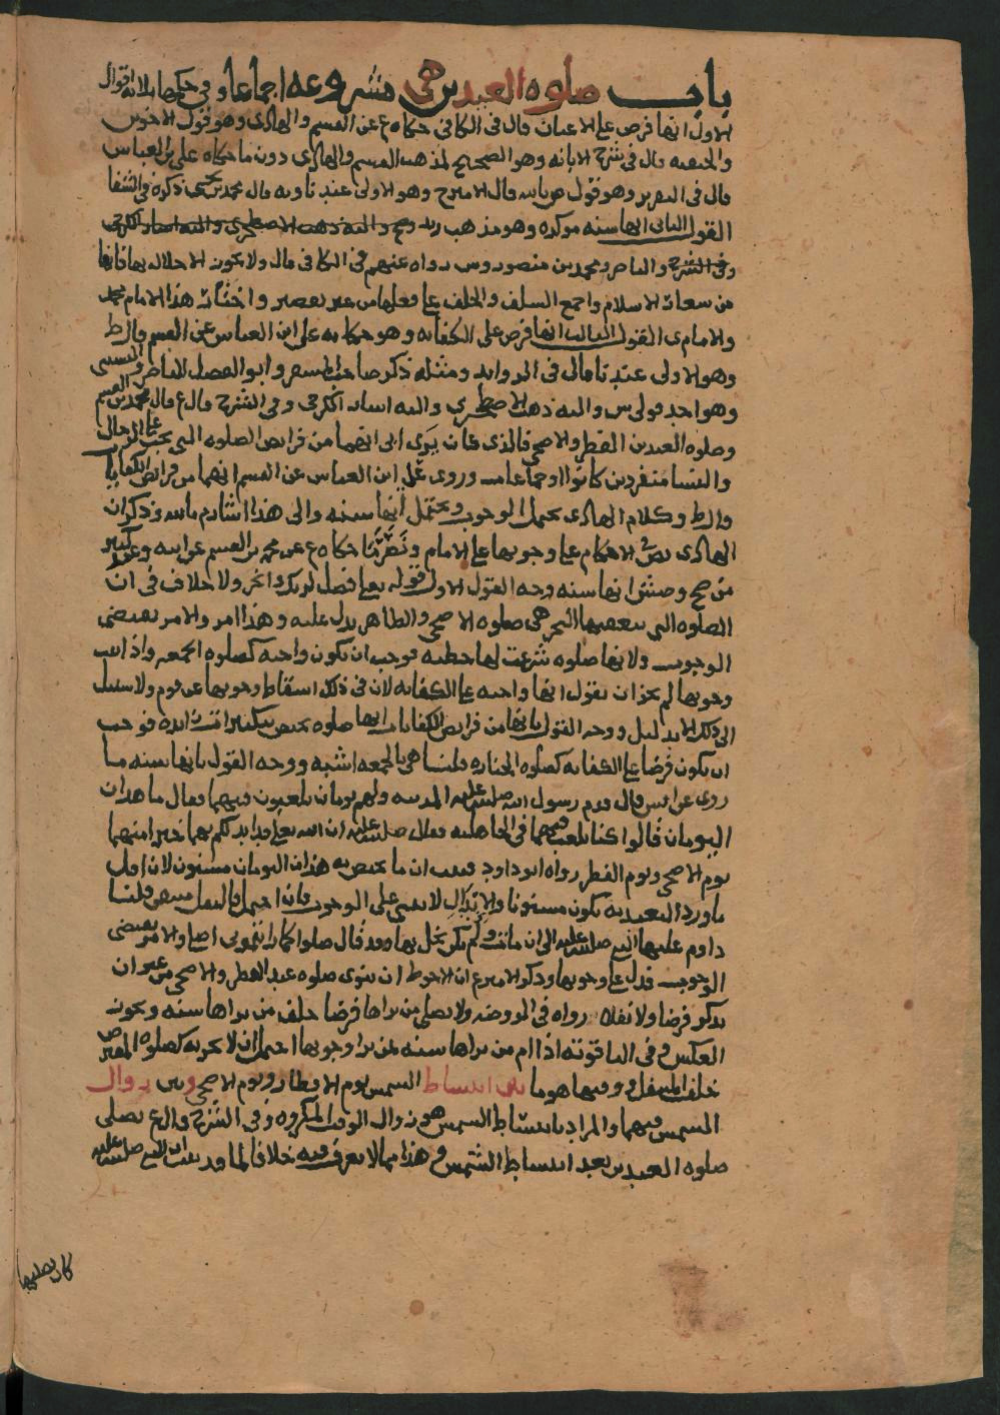 باب صلوة العيدين هي مشروعة اجماعا وفي حكمها ثلاثة اقوال
الاول انها فرض على الاعيان قال في الكافي حكاه ع عن القسم والهادى وهو قول الاخوين
والحنفيه قال في شرح الابانه وهو الصحيح لمذهب القسم والهادى دون ما حكاه على بن العباس
قال في التقرير وهو قول ص بالله قال الامير ح وهو الاولى عندنا وبه قال محمد بن يحيى ذكره في الشفا
القول الثاني انها سنه موكده وهو مذهب زيد وح واليه ذهب الاصطخرى واليه اشار الكرخى
وفي الشرح والناصر ومحمد بن منصور وس رواه عنهم في الكافي قال ولا يجوز الاخلال بها فانها
من شعائر الاسلام واجمع السلف والخلف على فعلها من غير تقصير واختاره هذا الامام محمد
والامام ى القول الثالث انها فرض على الكفايه وهو حكايه على ابن العباس عن القسم قال ط
وهو الاولى عندنا قال في الزوايد ومثله ذكر صاحب المسفر وابو الفضل للناصر
وهو احد قولى س واليه ذهب الاصطخرى واليه اشار الكرخى وفي الشرح قال ع قال محمد بن القسم
وصلوه العيدين الفطر والاضحى فالذى كان يرى ابى انهما من فرايض الصلوه التى تجب على الرجال
والنسا متفردين كانوا او جماعات وروى على ابن العباس عن القسم انهما من فرايض الكفايات
قال ط وكلام الهادى يحتمل الوجوب ويحتمل انها سنه والى هذا اشار م بالله وذكر ان
الهادى نص في الاحكام على وجوبها على الامام حكاه ع عن محمد بن القسم عن ابيه وعن كثير
من صح وصش انها سنه وجه القول الاول قوله تعالى فصل لربك وانحر ولا خلاف في ان
الصلوه التى يتعقبها النحر هى صلوه الاضحى والظاهر يدل عليه وهذا امر والامر يقتضى
الوجوب ولانها صلوه شرعت لها خطبه فوجب ان تكون واجبه كصلوه الجمعه واذا ثبت
وجوبها لم يجز ان نقول انها واجبه على الكفايه لان في ذلك اسقاط وجوبها عن قوم ولا سبيل
الى ذلك الا بدليل ووجه القول بانها من فرايض الكفايات انها صلوه تختص بتكبيرات زايده فوجب
ان تكون فرضا على الكفايه كصلوه الجنازه قلنا هى بالجمعه اشبه ووجه القول بانها سنه ما
روى عن انس قال قدم رسول الله صلى الله عليه المدينه ولهم يومان يلعبون فيهما فقال ما هذان
اليومان قالوا كنا نلعب فيهما في الجاهليه فقال صلى الله عليه ان الله تعالى قد ابدلكم بهما خيرا منهما
يوم الاضحى ويوم الفطر رواه ابو داود فثبت ان ما يختص به هذان اليومان مسنون لان اول
ما ورد التعبد به يكون مسنونا والابدال لا يقتضى على الوجوب وان احتمل قلنا
داوم عليها النبى صلى الله عليه الى ان مات ولم يكن يخل بها وقد قال صلوا كما رايتموني اصلى والامر يقتضى
الوجوب فدل على وجوبها وذكر الامير ع ان الاحوط ان ينوى صلوه عيد الفطر والاضحى من غير ان
يذكر فرضا ولا نفلا رواه في الروضه ولا يصلى من يراها فرضا خلف من يراها سنه ويجوز
العكس وفي الياقوته اذا ام من يراها سنه لمن يرا وجوبها احتمل ان لا يجزيه كصلوه المفترض
خلف المتنفل ووقتها هو ما بين انبساط الشمس يوم الافطار ويوم الاضحى وبين زوال
الشمس فيهما والمراد بانبساط الشمس هو زوال الوقت المكروه وفي الشرح قال ع تصلى
صلوه العيدين بعد انبساط الشمس وهذا مما لا يعرف فيه خلافا لما قد ثبت ان النبى صلى الله عليه
كان يصليها